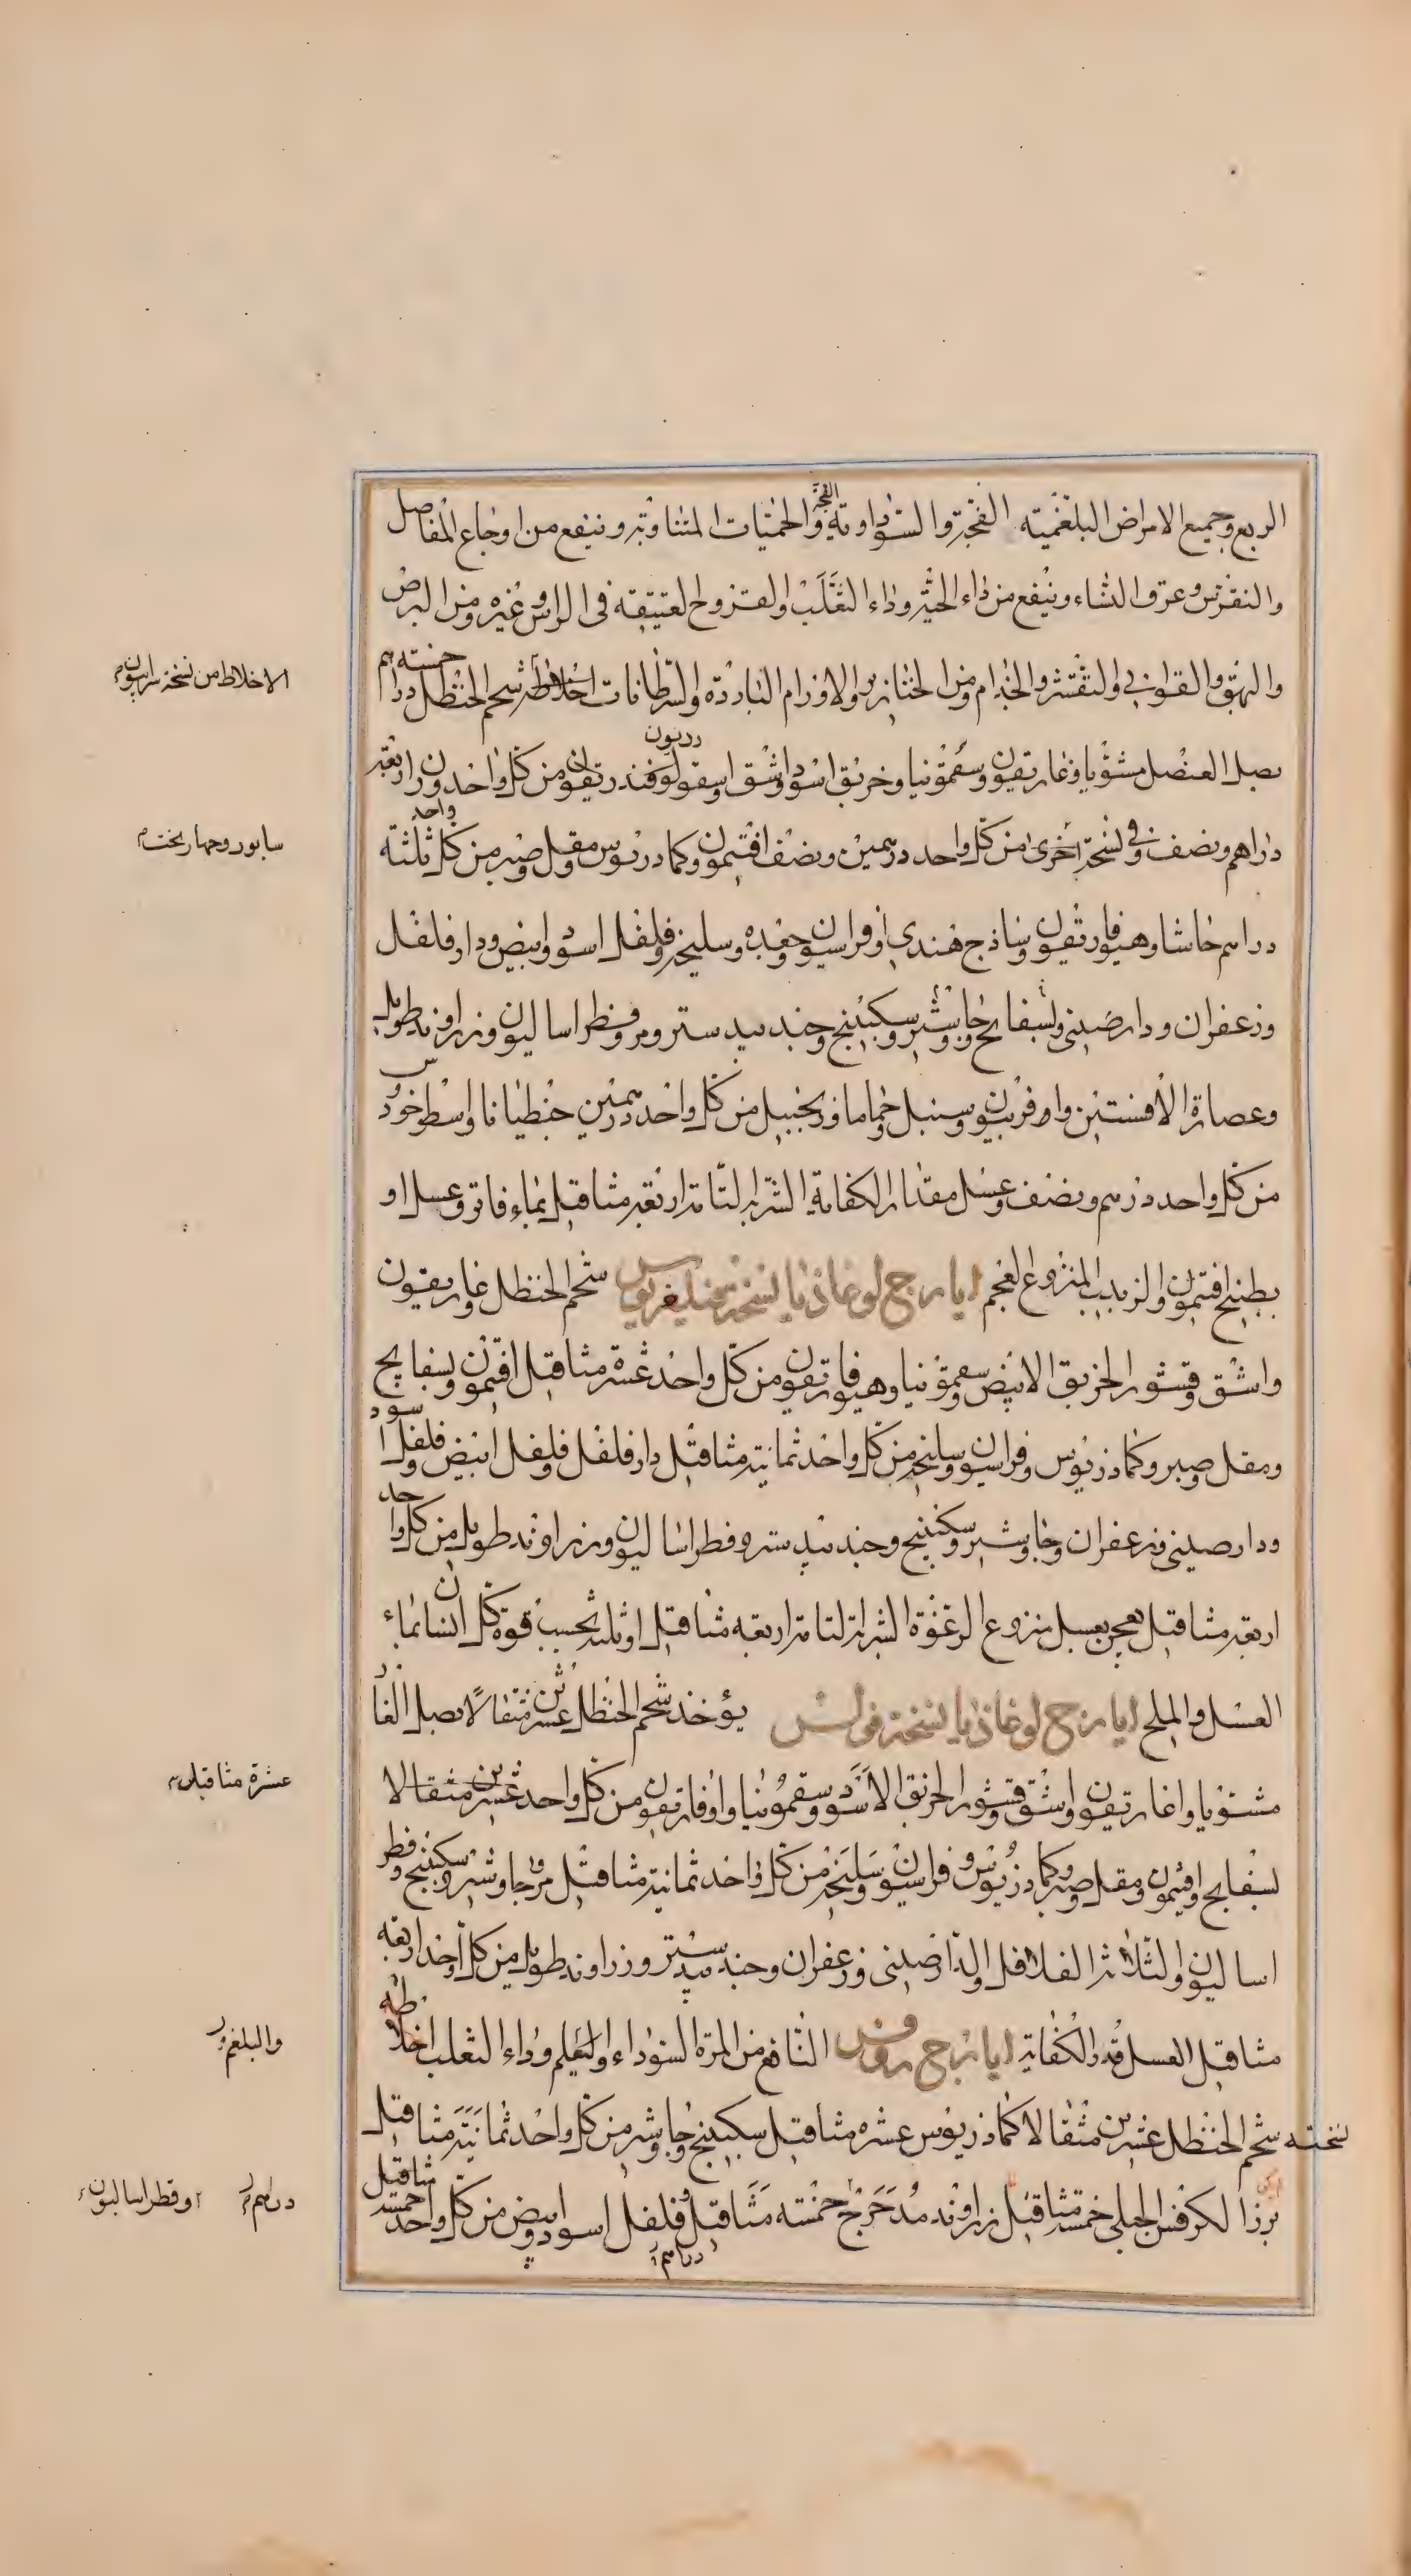 الربع وجميع الامراض البلغمية الفجة والسوداوية والحميات المتناوبة وينفع من اوجاع المفاصل
الفجة
والنقرس وعرق النساء وينفع من داء الحية وداء الثعلب والقروح العتيقة فى الراس وغيره ومن البرص
والبهق والقوابي والتقشر والجذام ومن الخنازير والاورام الباردة والسرطانات اخلاطه شحم الحنظل خمسة دراهم
الاخلاط من نسخة سرابيون
بصل العنصل مشويا وغاريقون وسقمونيا وخربق اسود واشق واسقولوقندريون من كل واحد وزن اربعة
دراهم ونصف وفي نسخة اخرى من كل واحد درهمين ونصف افتيمون وكمادريوس ومقل وصبر من كل واحد ثلثة
سابور وجهاربخت
دراهم حاشا وهيوفاريقون وساذج هندي وفراسيون وجعده وسليخة وفلفل اسود وابيض ودارفلفل
وزعفران ودارصيني وبسفايج وجاوشير وسكبينج وجندبيدستر ومر وفطراساليون وزراوند طويل
وعصارة الافسنتين وافربيون وسنبل وحماما وزنجبيل من كل واحد درهمين جنطيانا واسطوخودس
من كل واحد درهم ونصف وعسل مقدار الكفاية الشربة التامة اربعة مثاقيل بماء فاتر وعسل او
بطبيخ افتيمون والزبيب المنزوع العجم ايارج لوغاذيا نسخة شحم الحنظل غاريقون
واشق وقشور الخربق الابيض وسقمونيا وهيوفاريقون من كل واحد عشرة مثاقيل افتيمون وبسفايج
ومقل وصبر وكمادريوس وفراسيون وسليخة من كل واحد ثمانية مثاقيل دارفلفل وفلفل ابيض وفلفل اسود
ودارصيني وزعفران وجاوشير وسكبينج وجندبيدستر وفطراساليون وزراوند طويل من كل واحد
اربعة مثاقيل يعجن بعسل منزوع الرغوة الشربة التامة اربعة مثاقيل او ثلثة بحسب قوة كل انسان بماء
العسل والملح ايارج لوغاذيا نسخة فولس يؤخذ شحم الحنظل عشرين مثقالا بصل الفار
مشويا واغاريقون واشق وقشور الخربق الاسود وسقمونيا واوفاريقون من كل واحد عشرين مثقالا
عشرة مثاقيل
بسفايج وافتيمون ومقل وصبر وكمادريوس وفراسيون وسليخة من كل واحد ثمانية مثاقيل مر وجاوشير وسكبينج وفطر
اساليون والثلاثة الفلافل والدارصيني وزعفران وجندبيدستر وزراوند طويل من كل واحد اربعة
مثاقيل العسل قدر الكفاية ايارج روفس النافع من المرة السوداء والبلغم وداء الثعلب اخلاطه
والبلغم
نسخته شحم الحنظل عشرين مثقالا كمادريوس عشره مثاقيل سكبينج وجاوشير من كل واحد ثمانية مثاقيل
بزر الكرفس الجبلي خمسة مثاقيل زراوند مدحرج خمسة مثاقيل وفلفل اسود وابيض من كل واحد خمسة مثاقيل
دراهم
دراهم
وفطراساليون